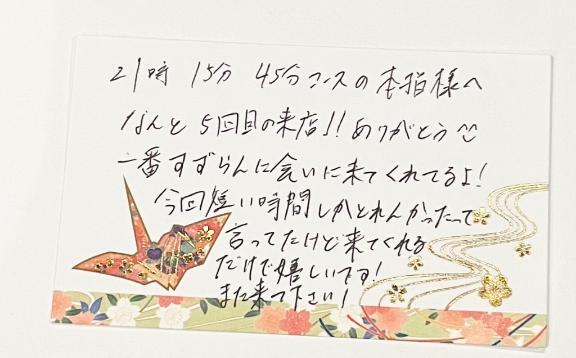 21時 15分 45分コースの本指様へ
なんと5回目の来店!! ありがとう
一番すずらんに会いに来てくれてるよ!
今回短い時間しかとれんかったって
言ってたけど来てくれる
だけで嬉しいです!
また来て下さい!